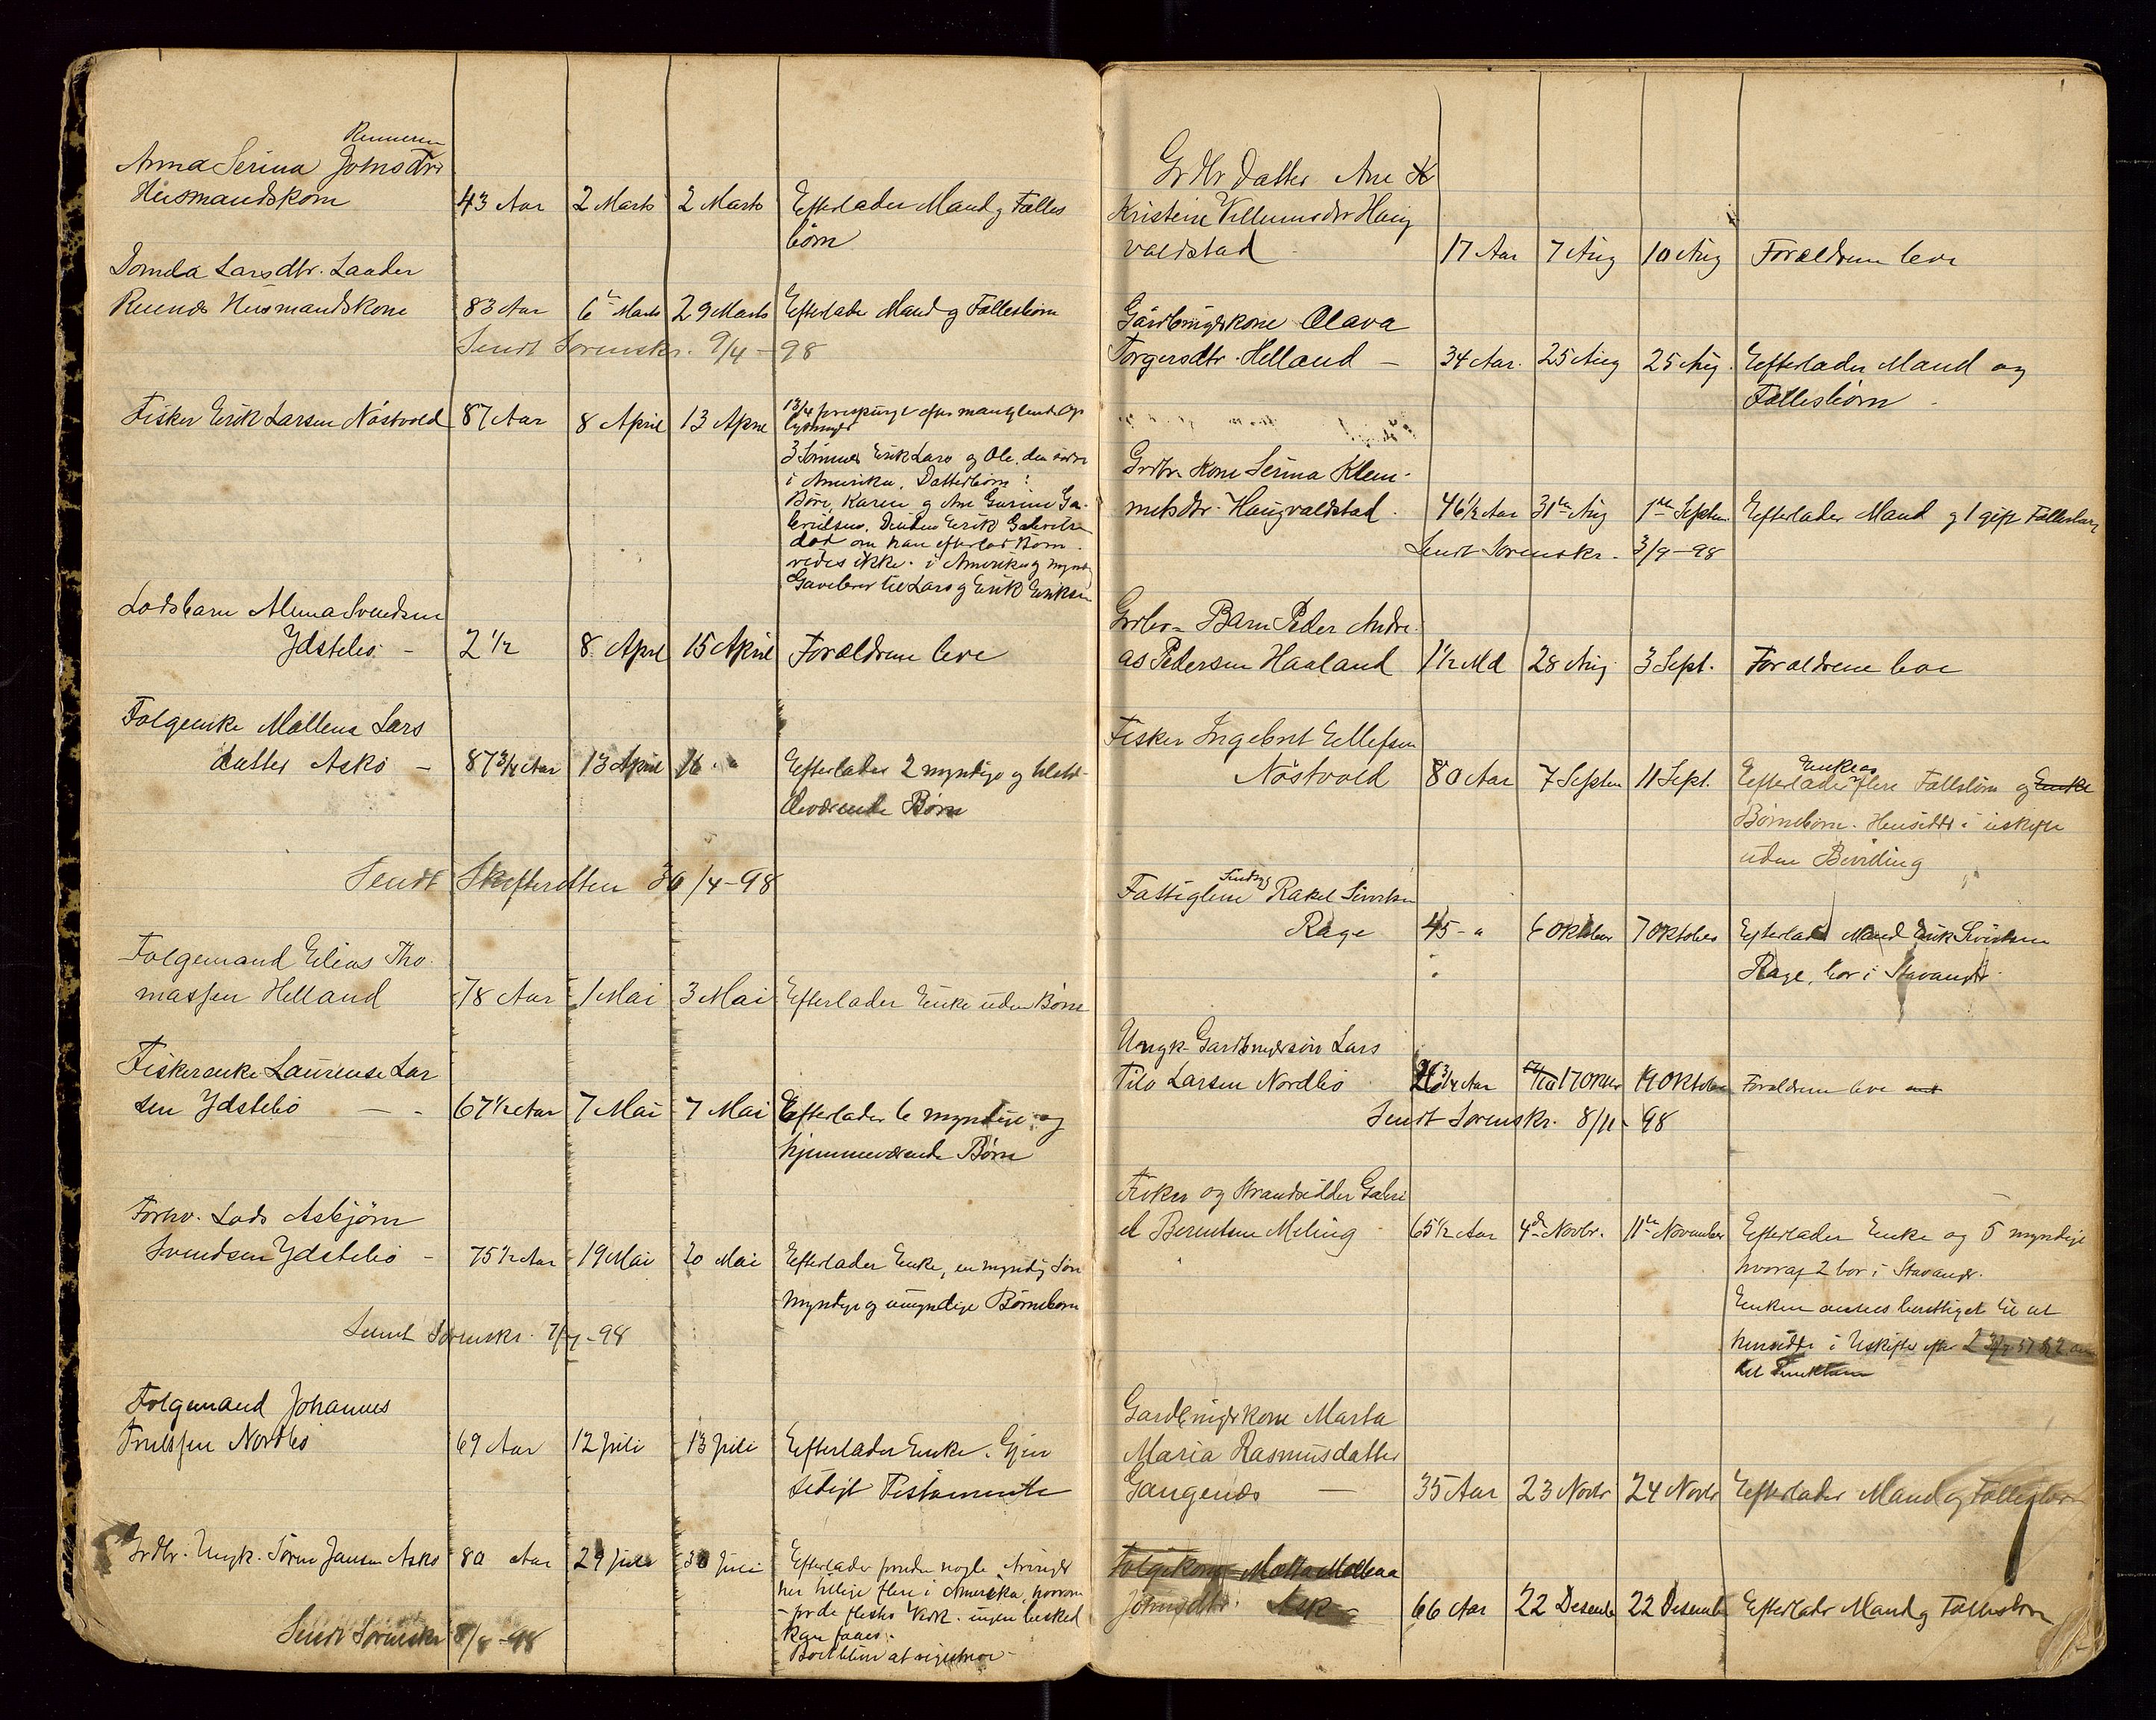 Rennesø
Anna Serina Johnsdtr
Husmandskone 43 Aar 2 Marts 2 Marts Efterlader Mand og Fælles
børn
Larsdtr.
Husmandskone 83 Aar 6 Marts 29 Marts Efterlader Mand og Fællesbørn
Sendt Sorenskr. 9/4 - 98
Fisker Erik Larsen Nöstvold 87 Aar 8 April 13 April 13/4 forespurgt efter manglende Op
lysninger
3 Sønner Erik Lars og Ole, den
i Amerika. Datterbørn:
Karen og Ane Gurine Ga-
brielsen. Erik Gabrielsen
död om han efterlod Börn
vides ikke. i Amerika og
Gavebrev til Lars og Erik Eriksen
Lodsbarn Alma Svendsen
Ydstebø - 2 1/2 8 April 15 April Forældrene leve
Folgeenke Mallena Lars
datter Askø - 87 3/4 Aar 13 April 16 " Efterlader 2 myndige og
Børn
Sendt Skifteretten 30/4-98
Folgemand Elias Tho-
massen Helland 78 Aar 1 Mai 3 Mai Efterlader Enke uden Børn
Fiskerenke Laurense Lar
sen Ydstebø - - 67 1/2 Aar 7 Mai 7 Mai Efterlader 6 myndige og
hjemmeværende Børn
Forhv. Lods Asbjørn
Svendsen Ydstebø - 75 1/2 Aar 19 Mai 20 Mai Efterlader Enke, en myndig Søn
myndige og umyndige Børnebørn
Sendt Sorenskr. 7/7-98
Folgemand Johannes
Trulssen Nordbø 69 Aar 12 juli 13 juli Efterlader Enke. Gjen
sidigt Testamente
Grdbr. Ungk. Sören Jansen Askø 80 Aar 29 juli 30 juli Efterlader nogle Arvinger
flere i Amerika, hvorom
for de flestes Vedk. ingen besked
kan faaes.
Sendt Sorenskr 8/8-98
Gr Br Datter Ane K
Kristine Villumsdtr Haug
valdstad - 17 Aar 7 Aug 10 Aug Forældrene leve
Gårdbrugerkone Olava
Torgersdtr. Helland - 34 Aar. 25 Aug 25 Aug. Efterlader Mand og
Fællesbørn -
Grdbr. Kone Serina Klem-
metsdtr. Haugvaldstad. 46 1/2 Aar 31te Aug 1ste Septbr. Efterlader Mand og 1 gift Fællesbarn
Sendt Sorenskr. 3/9-98
Grdbr. Barn Peder Andre-
as Pedersen Haaland 1 1/2 Md 28 Aug 3 Sept. Forældrene leve
Fisker Ingebret Ellefsen
Enke og
Nöstvold 80 Aar 7 Septbr 11 Sept. Efterlader flere Fællesbørn og Enke
Børnebørn. Hensidder i uskifte
uden Bevilling
Sindsyg
Fattiglem Rakel Sivertsen
Rage 45 - " 6 Oktober 7 Oktober Efterlader Mand Erik Sivertsen
Rage, bor i Stavanger.
Ungk. Gardbrugersøn Lars
Tilo Larsen Nordbø 26 3/4 Aar 17 Oktbr 19 Oktober Forældrene leve
Sendt Sorenskr. 8/11 - 98
Fisker og Strandsidder Gabri
el Berentsen Meling 65 1/2 Aar 4de Novbr. 11te November Efterlader Enke og 5 myndige
hvoraf 2 bor i Stavanger.
Enken ansees berettiget til at
hensidde i Uskiftet efter
Gardbrugerkone Marta
Maria Rasmusdatter
Gangenæs - 35 Aar 23 Novbr 24 Novbr Efterlader Mand og Fællesbørn
Folgekone Malla
Johnsdtr. Ask - 66 Aar 22 Desember 22 Desember Efterlader Mand og Fællesbørn